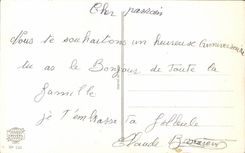 Cher parrain
Nous te souhaitons un heureux anniversaire
tu as le Bonjour de toute la
famille
je t'embrasse ta filleule
Claude